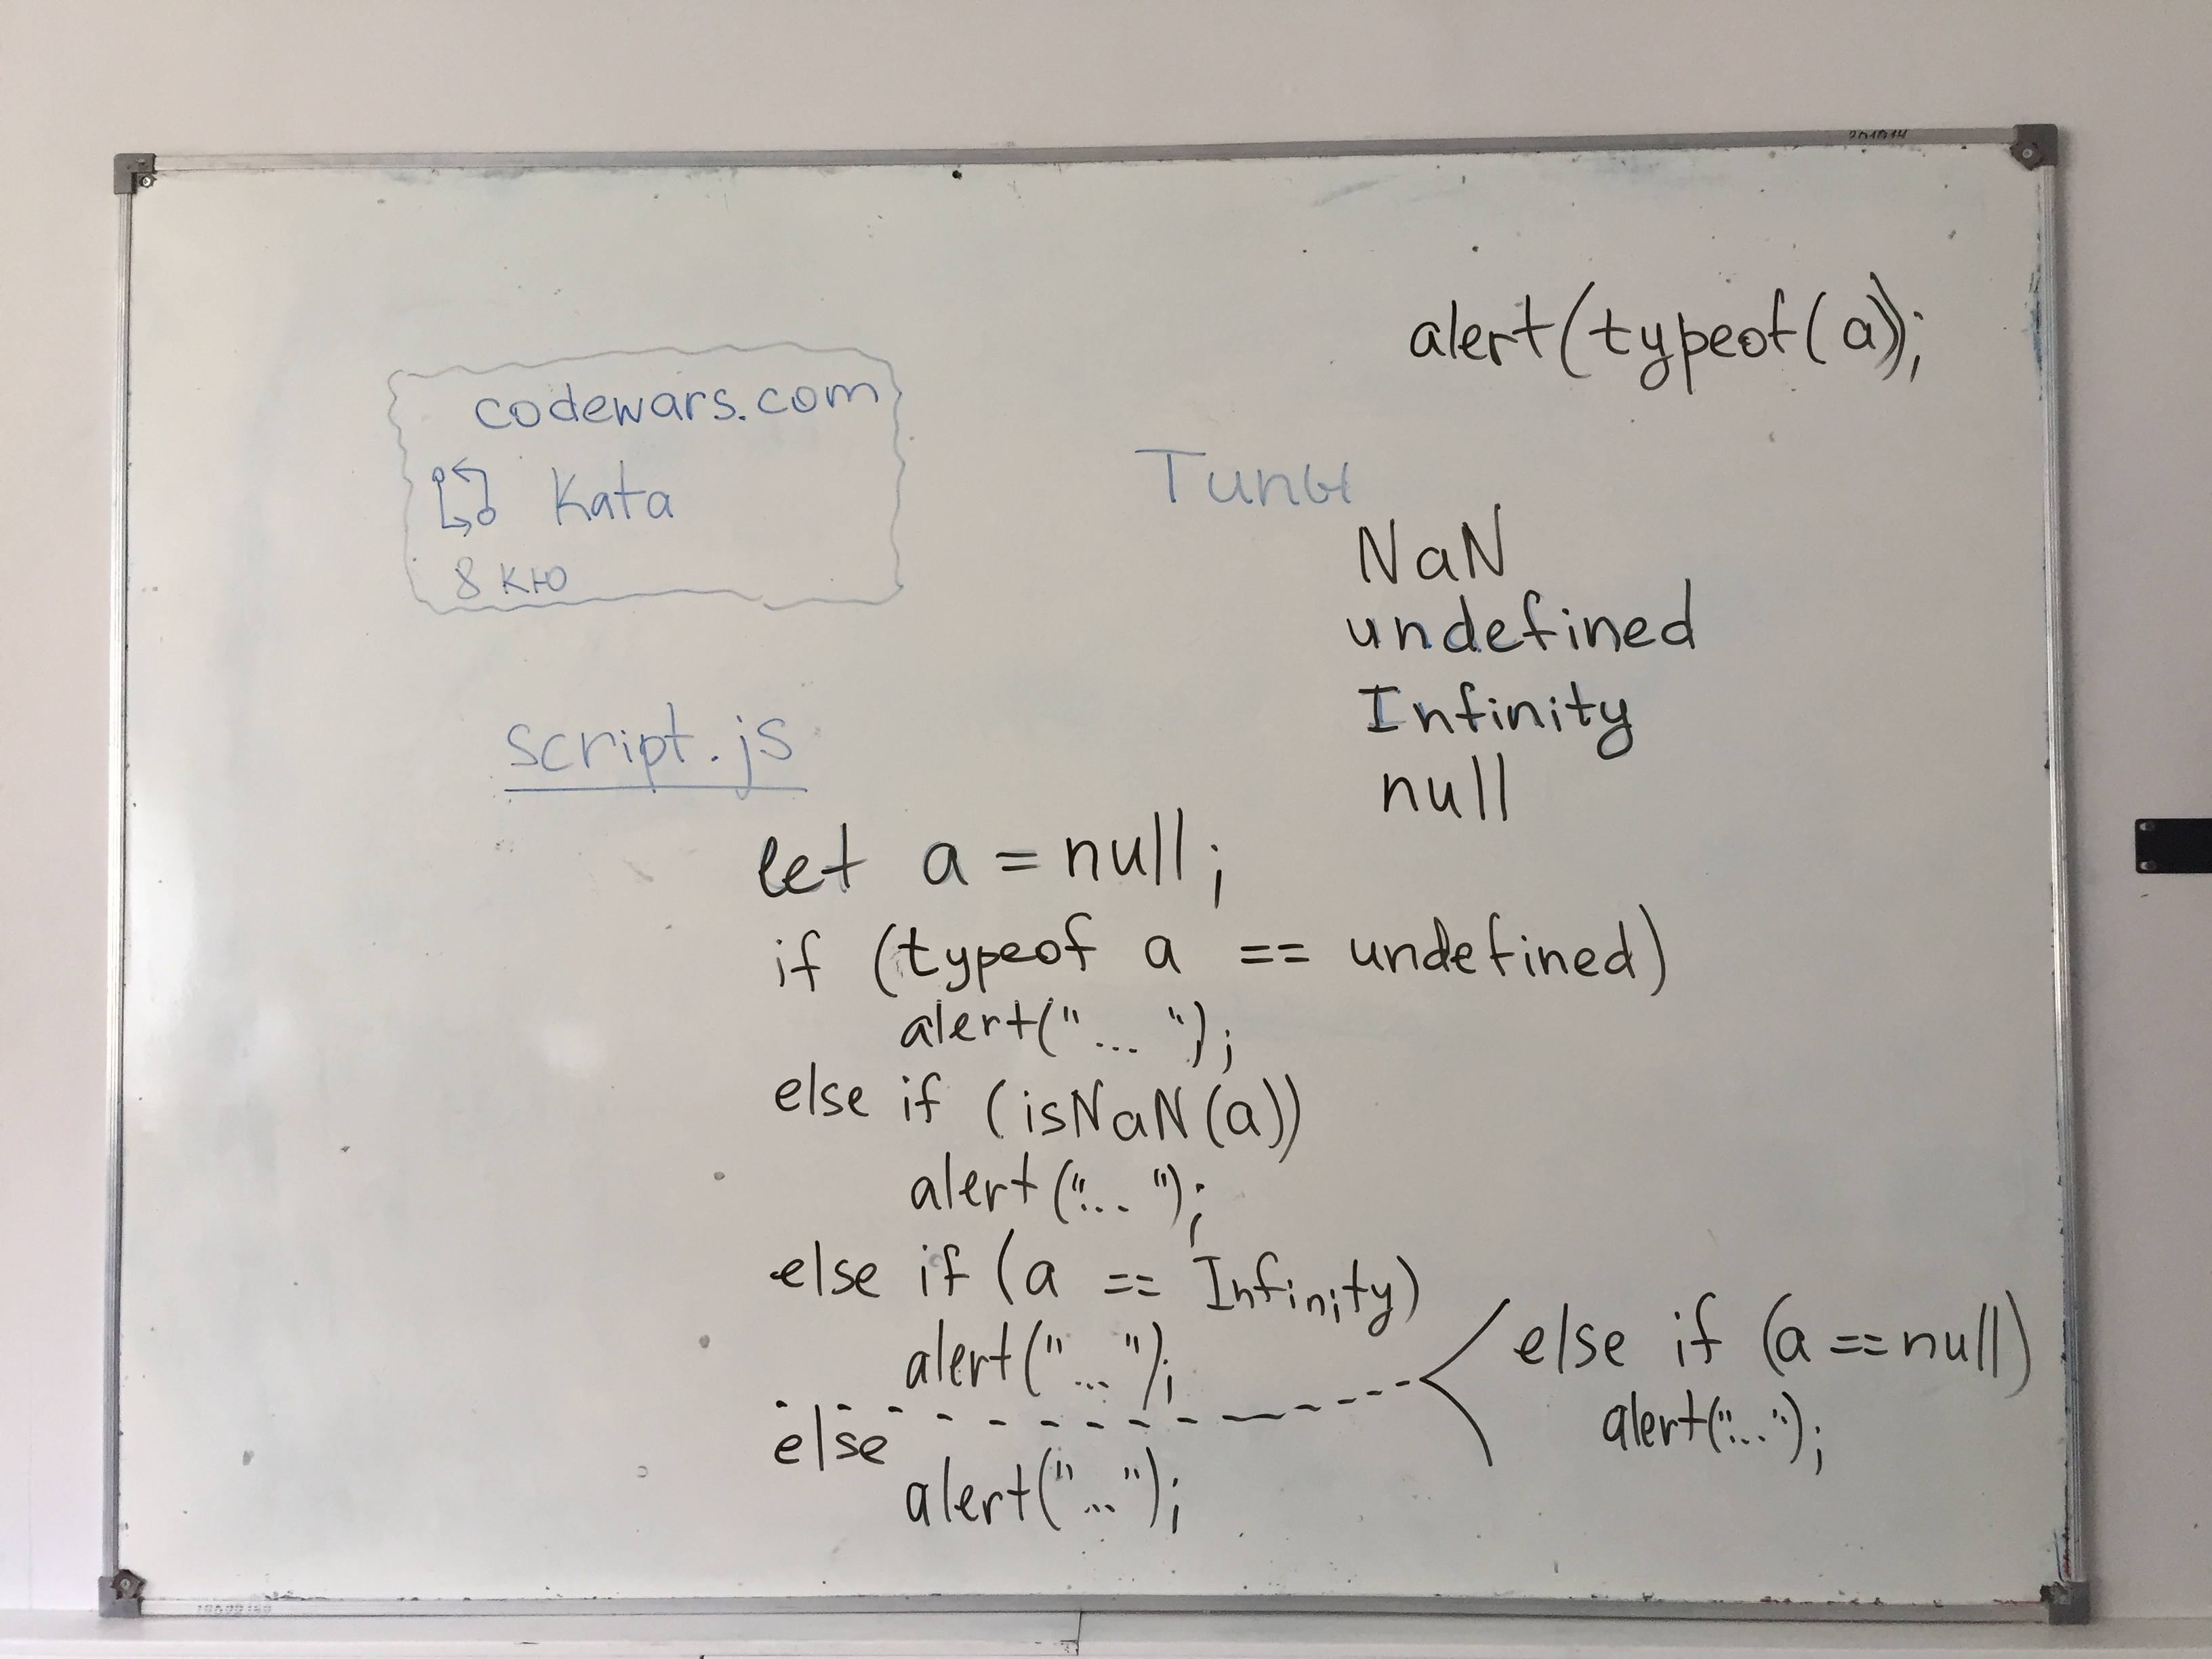 alert(typeof(a));
codewars.com
Kata
8 кю
Типы
NaN
undefined
Infinity
null
script.js
let a = null;
if (typeof a == undefined)
alert("... ");
else if (isNaN(a))
alert("... ");
else if (a == Infinity)
alert("... ");
else if (a == null)
alert("...");
else
alert("...");